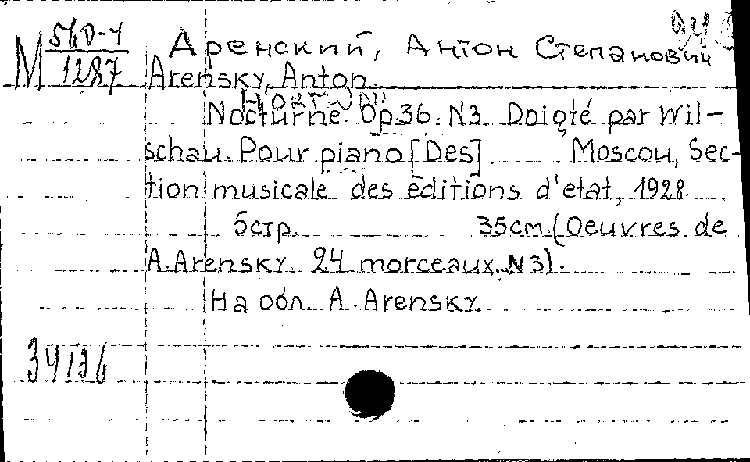 М 560-4
1287
Аренский, Антон Степанович
Arensky, Anton.
Ноктюрн
Nocturne. Op.36. N3. Doigté par Wil-
schau. Pour piano [Des] Moscou, Sec-
tion musicale des éditions d'etat, 1928
5стр. 35см.(Oeuvres de
A.Arensky. 24 morceaux.N3).
На обл. A.Arensky.
34136